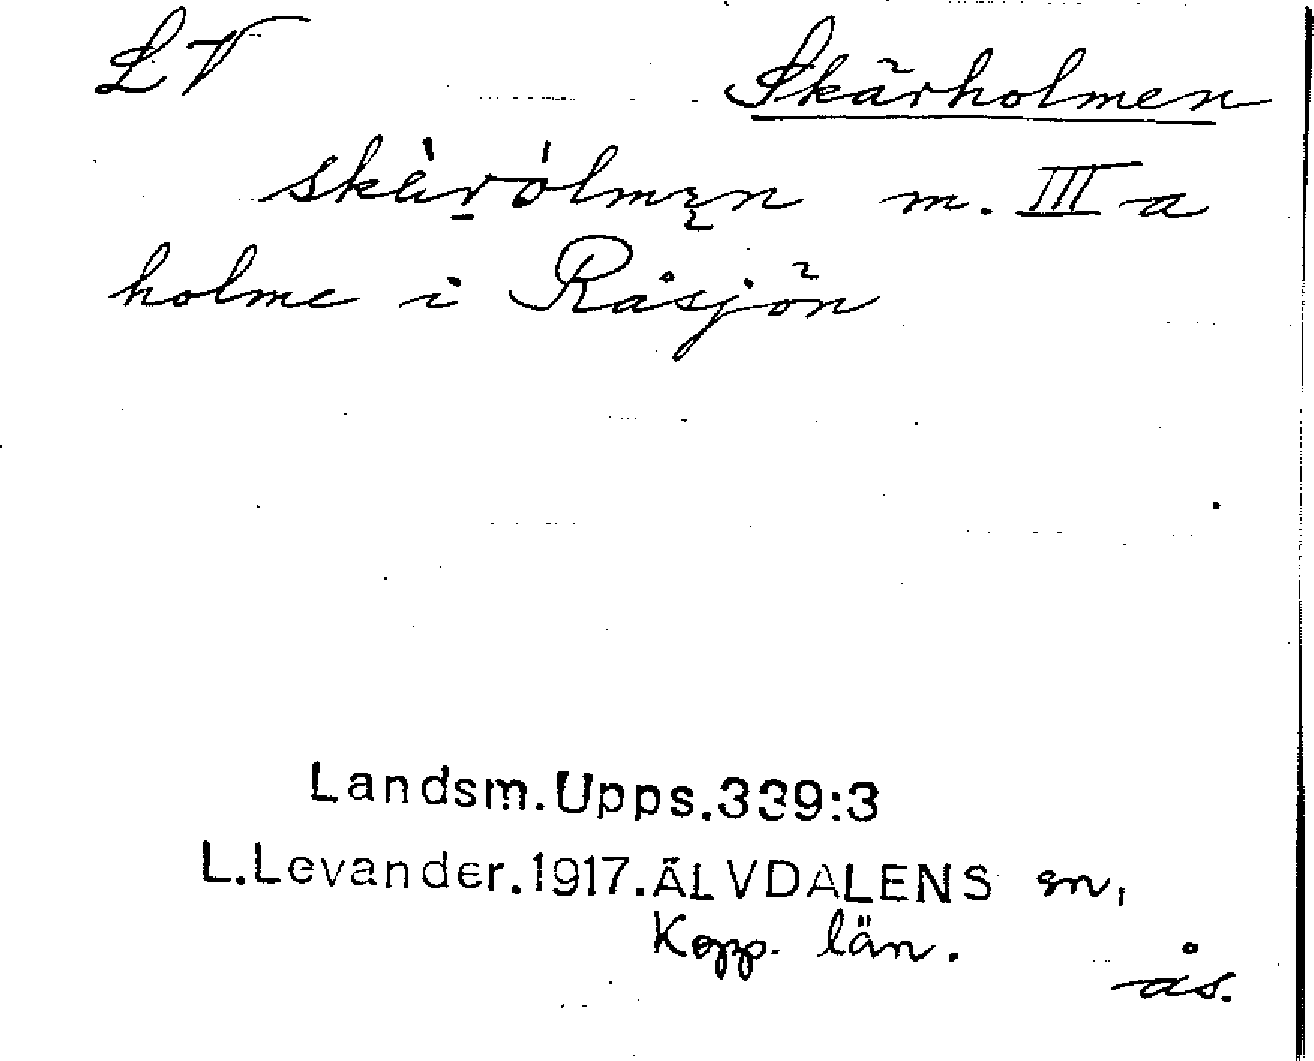 LV Skärholmen
skèr̠ólmęn m. III a
holme i Råsjön
Landsm.Upps.339:3
L.Levander.1917.ÄLVDALENS sn,
Kopp. län.
ås.